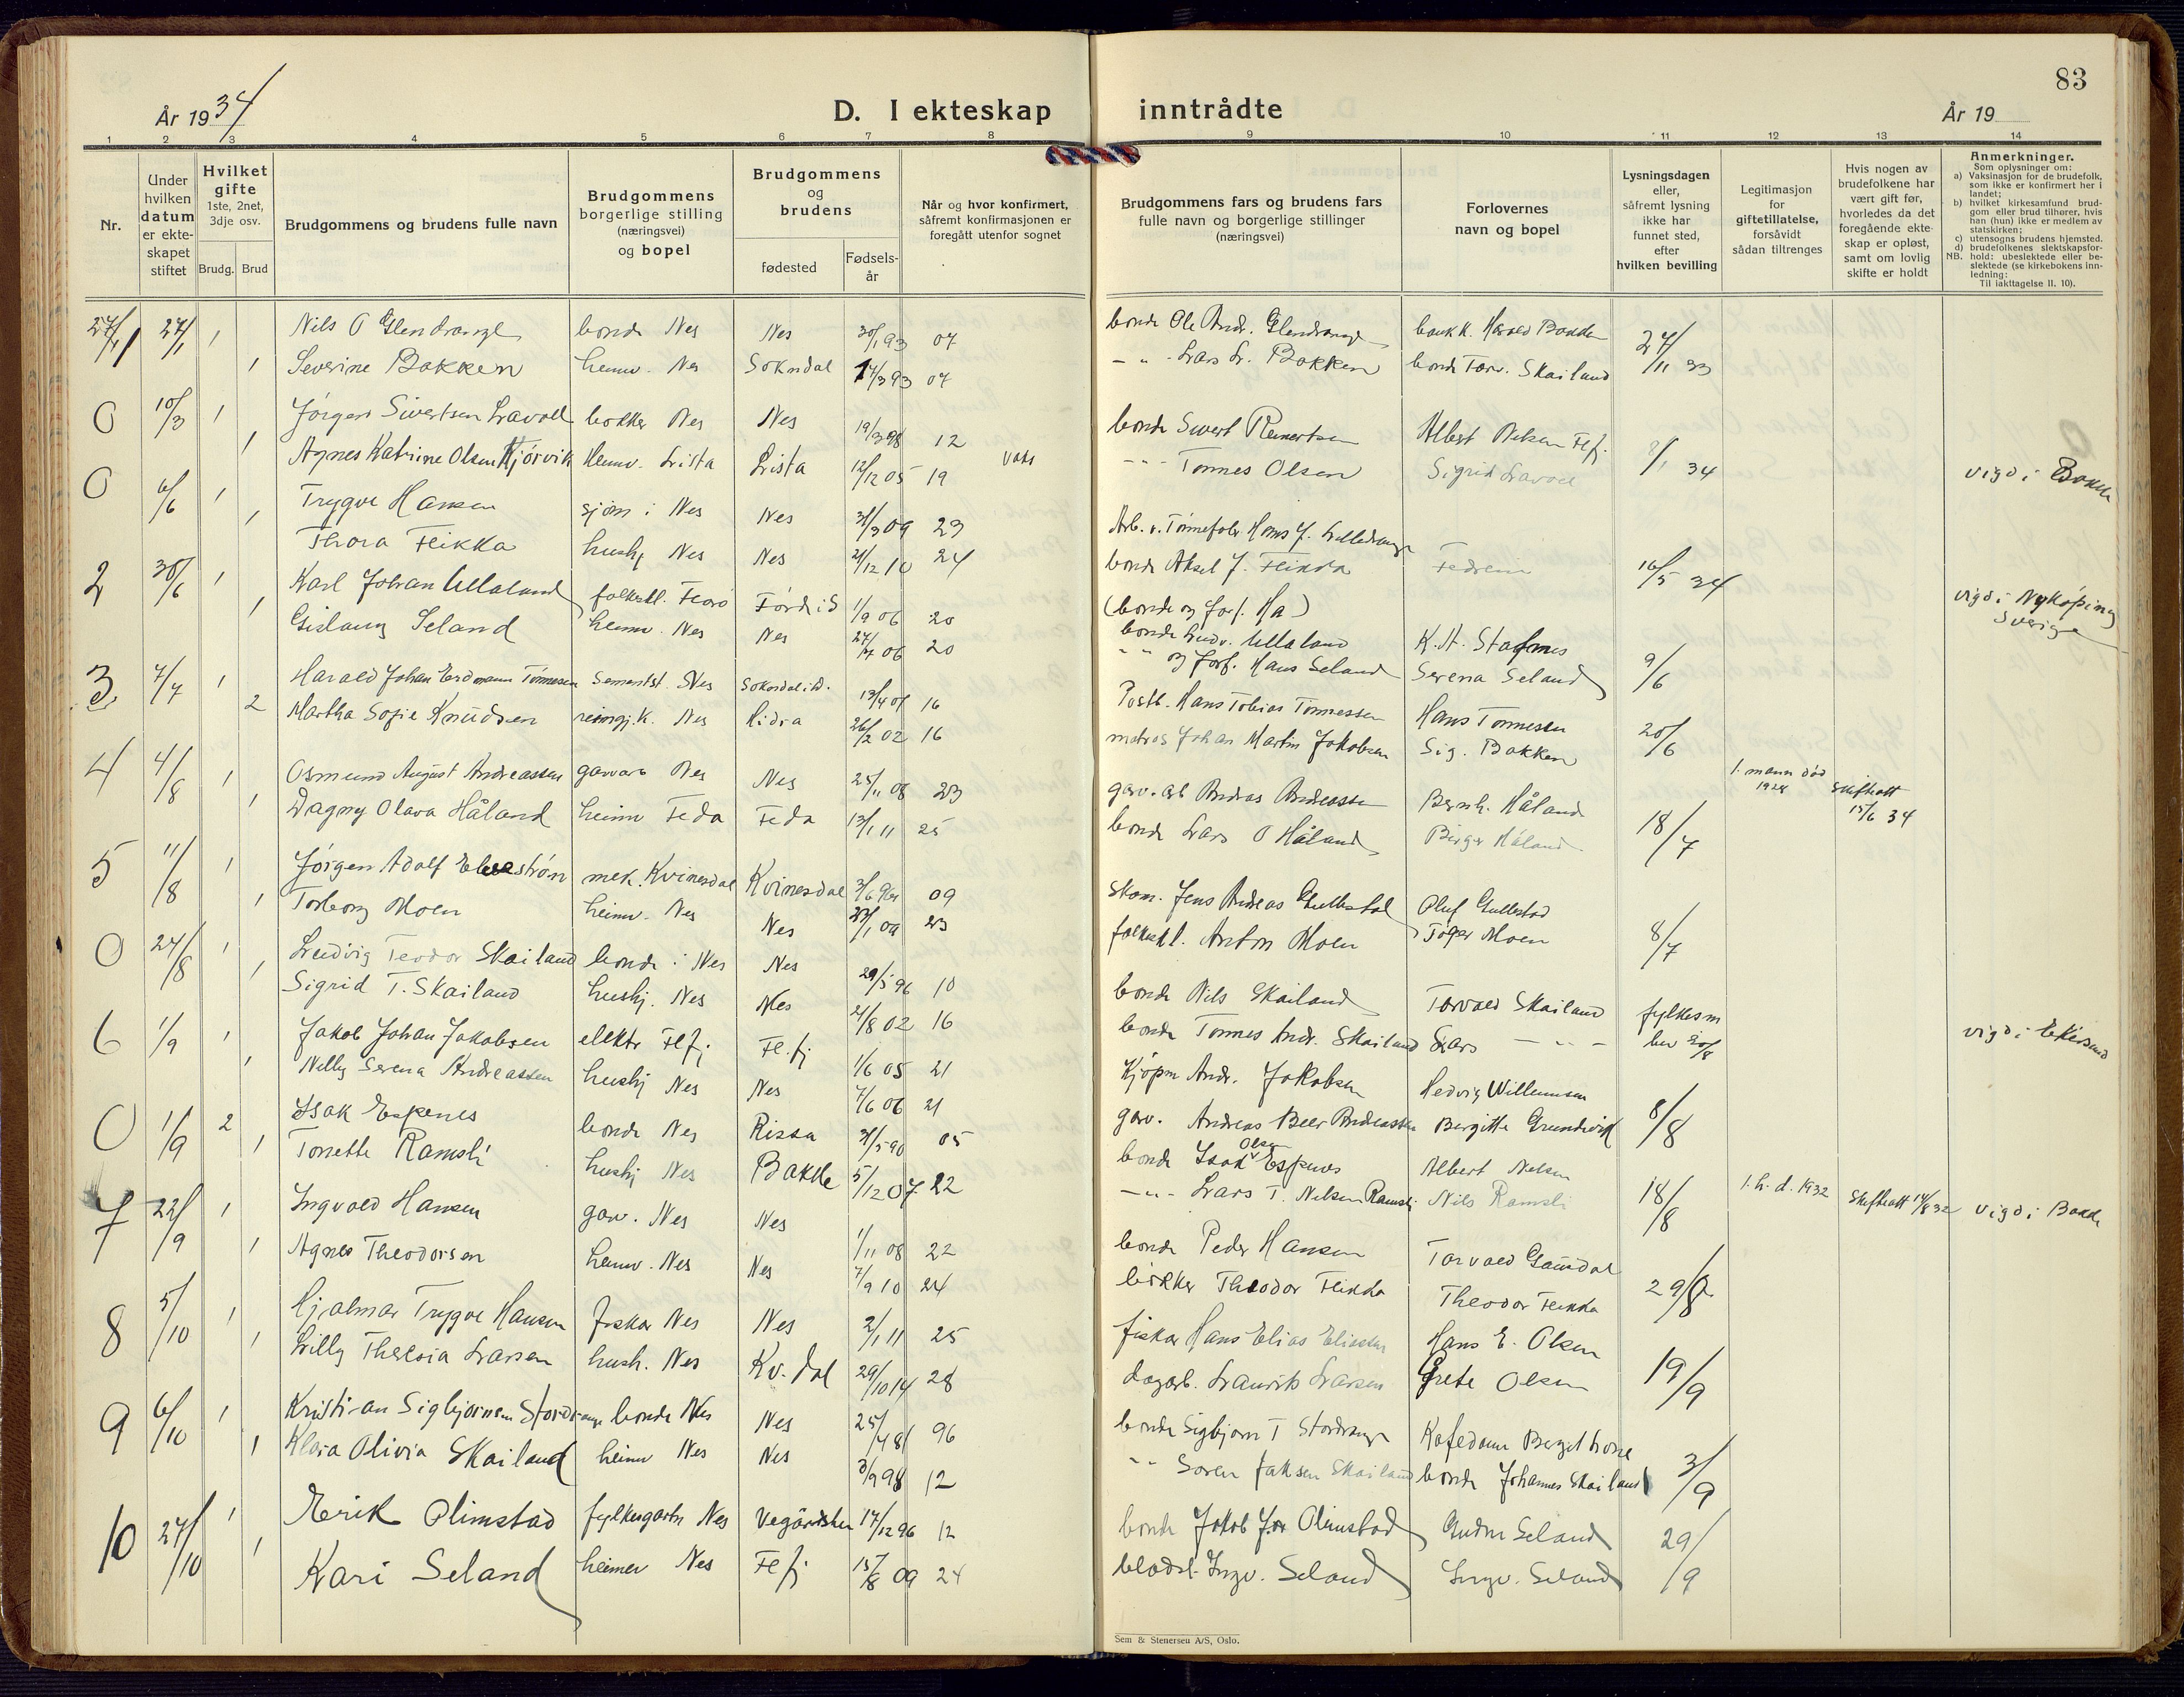 83
År 1934
D. I ekteskap inntrådte
År 19
1 2 3 4 5 6 7 8 9 10 11 12 13 14
Nr.
Under hvilken datum er ekteskapet stiftet
Hvilket gifte
1ste, 2net, 3dje osv.
Brudg. Brud
Brudgommens og brudens fulle navn
Brudgommens borgerlige stilling (næringsvei) og bopel
Brudgommens og brudens
fødested
Fødsels-år
Når og hvor konfirmert, såfremt konfirmasjonen er foregått utenfor sognet
Brudgommens fars og brudens fars fulle navn og borgerlige stillinger (næringsvei)
Forlovernes navn og bopel
Lysningsdagen eller, såfremt lysning ikke har funnet sted, efter hvilken bevilling
Legitimasjon for giftetillatelse, forsåvidt sådan tiltrenges
Hvis nogen av brudefolkene har vært gift før, hvorledes da det foregående ekteskap er opløst, samt om lovlig skifte er holdt
Anmerkninger.
Som oplysninger om:
a) Vaksinasjon for de brudefolk, som ikke er konfirmert her i landet;
b) hvilket kirkesamfund brudgom eller brud tilhører, hvis han (hun) ikke er medlem av statskirken;
c) utensogns brudens hjemsted.
d) brudefolkenes slektskapsfor-
NB. hold: ubeslektede eller beslektede (se kirkebokens innledning:
Til iakttagelse II. 10).
27/1 1 Nils O Glendrange bonde Nes Nes 30/1 93 07 bonde Ole Andr. Glendrange Harald Bakken 27/11 33
1 Severine Bakken heimv. Nes Sokndal 17/3 93 07 Lars Bakken bonde Torv. Skailand
0 10/3 1 Jørgen Sivertsen Lavoll bøkker Nes Nes 19/3 98 12 bonde Sivert Reinertsen Albert Nilsen Flfj. 8/1 34 vigd i Bakke
1 Agnes Katrine Olsen Kjørvik heimv. Lista Lista 12/12 05 19 Tønnes Olsen Sigrid Lavoll
0 6/6 1 Trygve Hansen sjøm i Nes Nes 31/3 09 23 Arb. v. Tønnefabr Hans J.
1 Thora Fleikka hushj Nes Nes 21/12 10 24 bonde Aksel J. Fleikka 16/5 34 vigd i Nykøping Sverige
2 30/6 1 Karl Johan Ullaland Førd i S 1/9 06 20 bonde Ludv. Ullaland K. A. Stafsnes 9/6
(bonde og forf. Ha)
1 Gislaug Seland heimv. Nes Nes 27/7 06 20 og forf. Hans Seland Serena Seland
3 7/7 1 Harald Johan Erdmann Tønnesen Sementst. Nes Sokndal i D. 13/4 01 16 Postb. Hans Tobias Tønnessen Hans Tønnessen 20/6
2 Martha Sofie Knudsen reingj.k. Nes Hidra 26/2 02 16 matros Johan Martin Jakobsen Sig. Bakken 1. mann død 1928 skifteatt 15/6 34
4 4/8 1 Osmund August Andreassen garvar Nes Nes 25/11 08 23 garv. arb Andreas Andreassen Bernh. Håland 18/7
1 Dagny Olava Håland heimv Feda Feda 13/1 11 25 bonde Lars O Håland Birger Håland
5 11/8 1 Jørgen Adolf mek. Kvinesdal Kvinesdal 09 skom. Jens Andreas Gullestad Oluf Gullestad 8/7
1 Torborg Moen heimv. Nes Nes 23/1 09 23 Anton Moen Moen
0 24/8 1 Ludvig Teodor Skailand bonde i Nes Nes 29/5 96 10 bonde Nils Skailand Torvald Skailand fylkesm bev 20/8 vigd i Ekersund
1 Sigrid T. Skailand hushj. Nes Nes 21/8 02 16 bonde Tønnes Andr. Skailand Lars
6 1/9 1 Jakob Johan Jakobsen elektr Flfj Fl.fj 1/6 05 21 kjøpm Andr. Jakobsen Hedvig Willumsen 8/8
1 Nelly Serena Andreassen hushj Nes Nes 7/6 06 21 garv. Andreas Beer Andreassen Bergitte Grundvik
0 1/9 2 Isak Espenes bonde Nes Rissa 31/5 90 05 bonde Isak Olsen Espenes Albert Nilsen 18/8 1. h. d. 1932 Skifteatt 14/8 32 vigd i Bakke
1 Tonette Ramsli hushj Nes Bakke 5/12 07 22 Lars T. Nelson Ramsli Nils Ramsli
7 22/9 1 Ingvald Hansen garv. Nes Nes 1/11 08 22 bonde Peder Hansen Torvald Gausdal 29/8
1 Agnes Theodorsen heimv. Nes Nes 7/9 10 24 bøkker Theodor Fleikka Theodor Fleikka
8 5/10 1 Hjalmar Trygve Hansen fiskar Nes Nes 2/1 11 25 fiskar Hans Elias Eliassen Hans E. Olsen 19/9
1 Lilly Theresia Larsen hush. Nes Kv. dal 29/10 14 28 dagarb. Laurits Larsen Grete Olsen
9 6/10 1 Kristian Sigbjørnsen Stordrange bonde Nes Nes 25/4 81 96 bonde Sigbjørn T Stordrange 3/9
1 Klara Olivia Skailand heimv Nes Nes 3/9 98 12 Søren Jaksen Skailand bonde Johannes Skailand
10 27/10 1 Erik Olimstad fylkesgartn Nes Vegårdshei 17/12 96 12 bonde Jakob Olimstad Gudrun Seland 29/9
1 Kari Seland heimv Nes Flfj 15/8 09 24 Ingv. Seland Ingv. Seland
Sem & Stenersen A/S, Oslo.